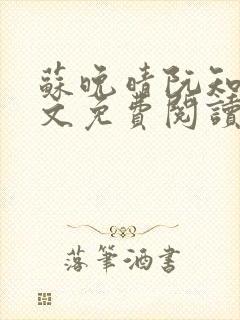 蘇晚晴阮知
文免費閱讀
落筆酒書